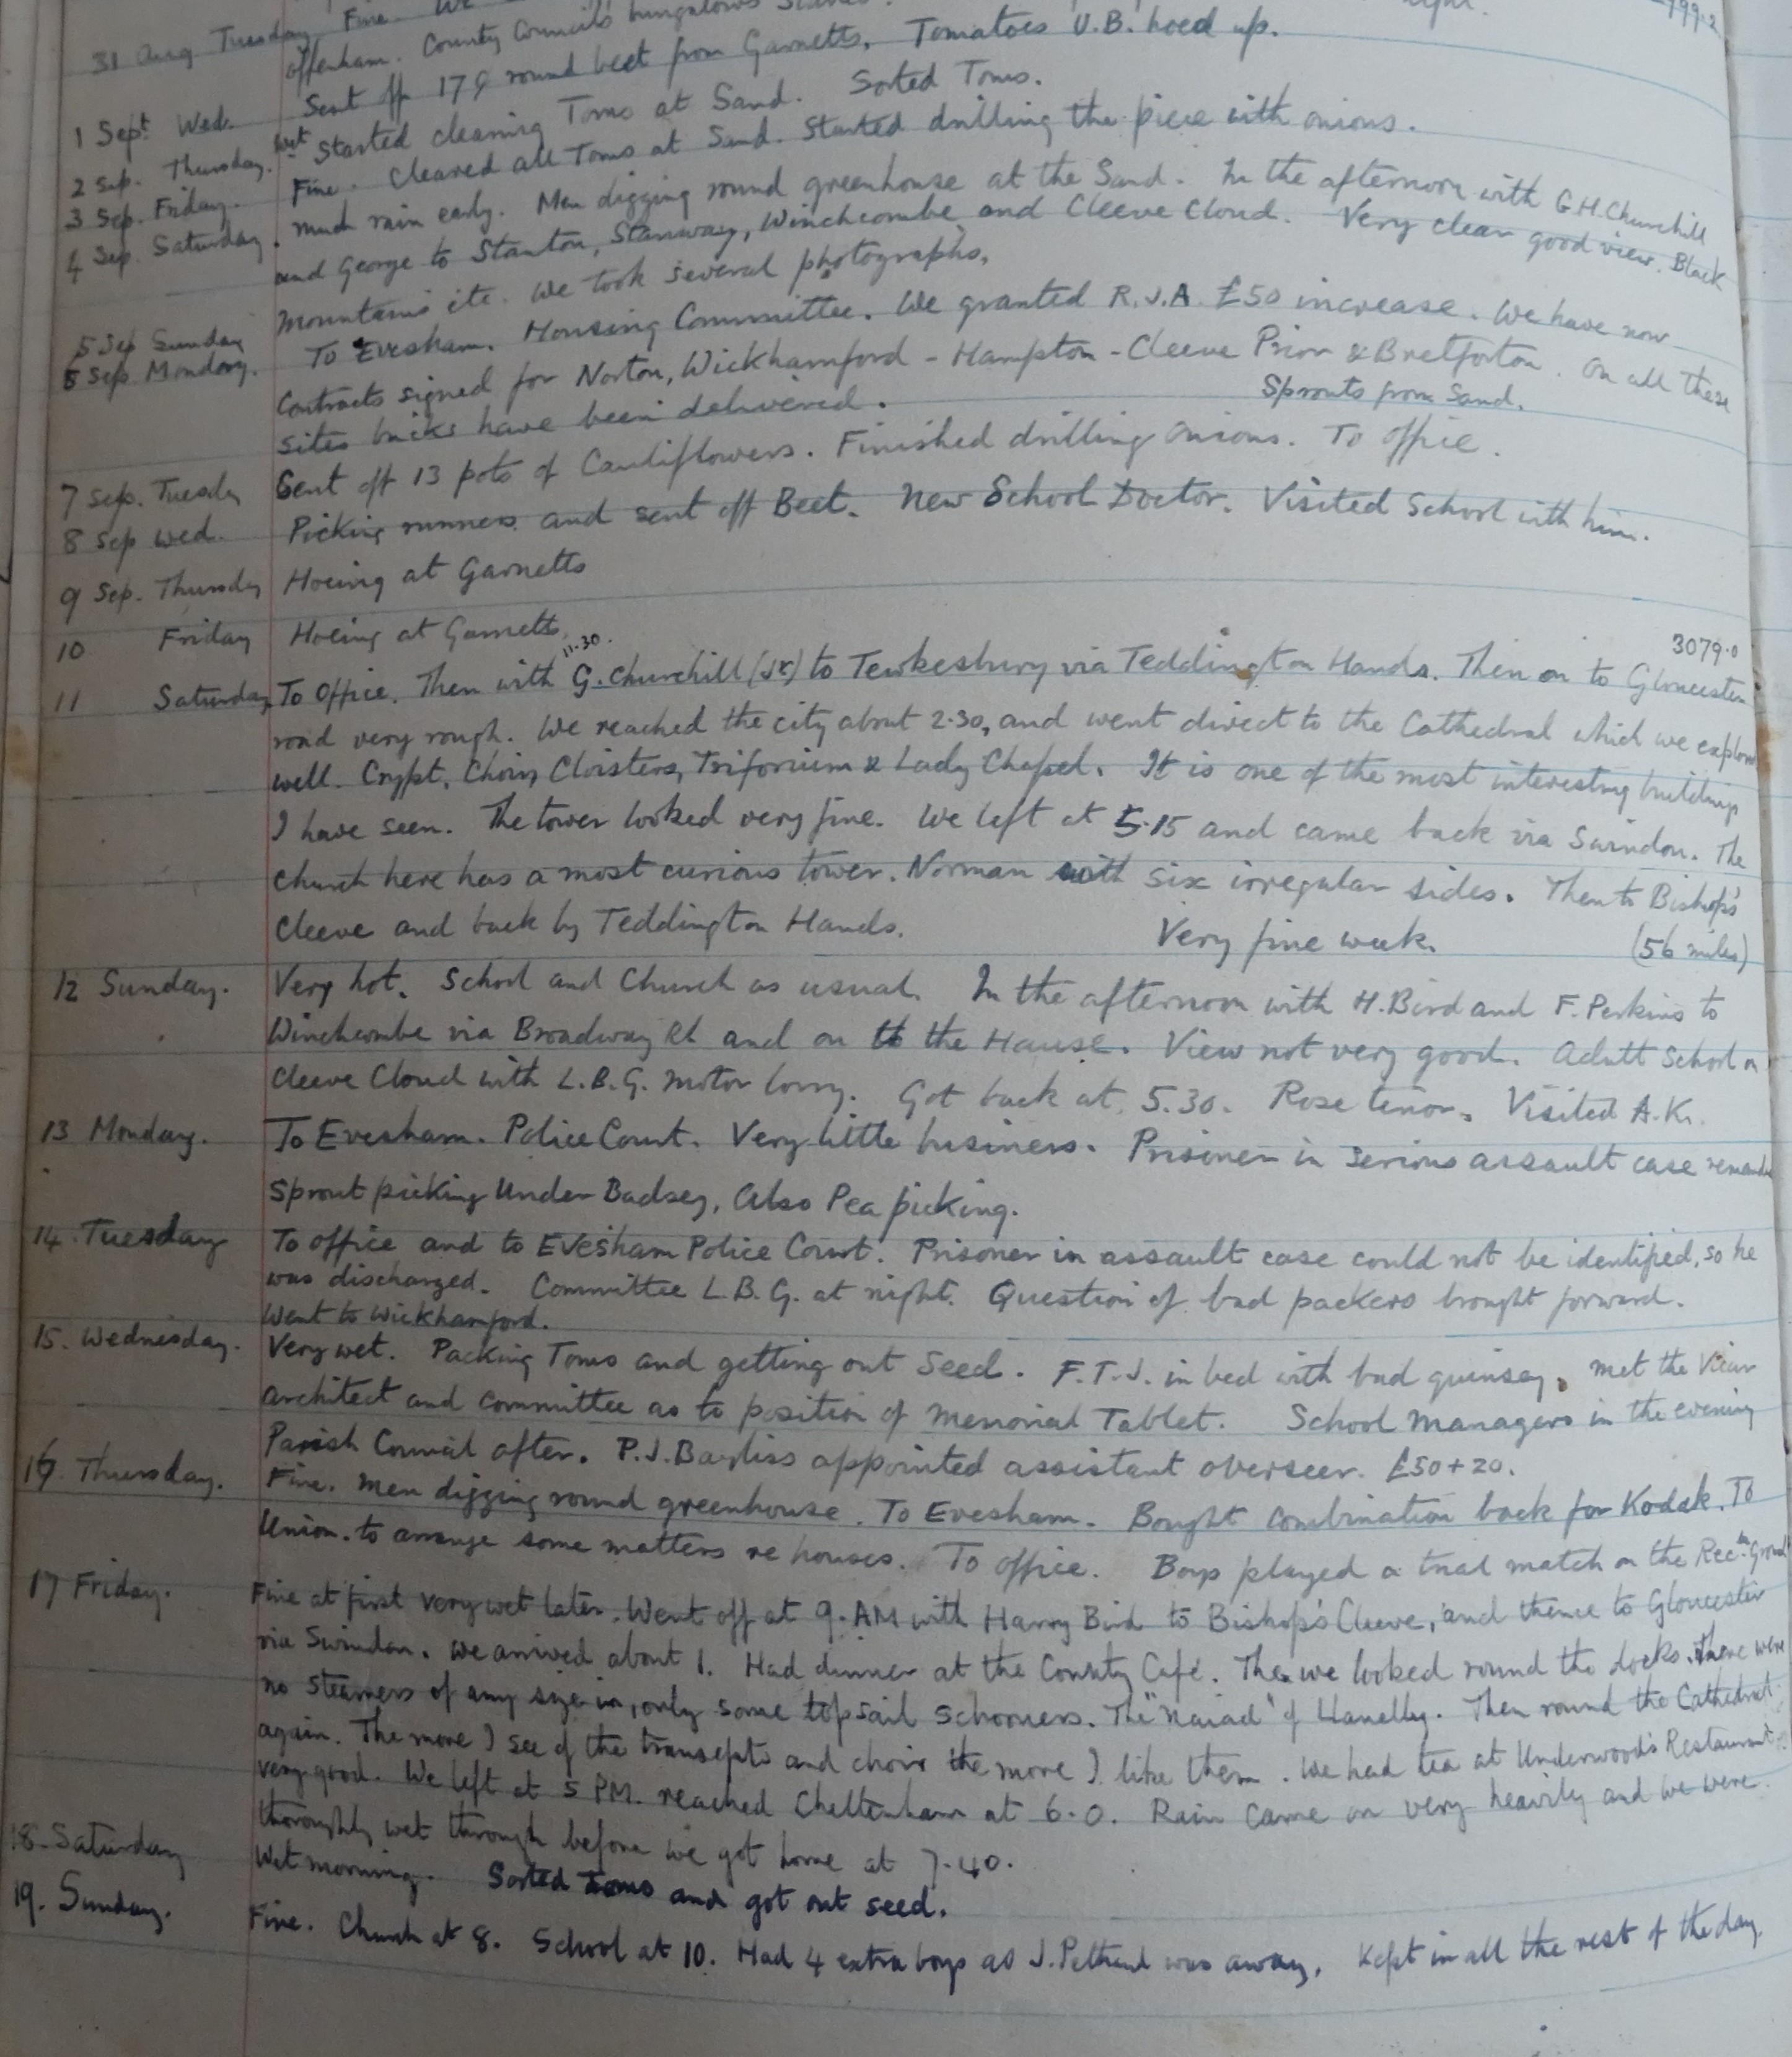 31 Aug Tuesday Fine. We
Offenham. County Councils bungalows
Sent off 179 round beet from Garnetts. Tomatoes U.B. hoed up.
1 Sept Wed. wet Started cleaning Toms at Sand. Sorted Toms.
2 Sep. Thursday. Fine. Cleared all Toms at Sand. Started drilling the piece with onions.
3 Sep. Friday. much rain early. Men digging round greenhouse at the Sand. In the afternoon with G.H.Churchill
4 Sep. Saturday. and George to Stanton, Stanway, Winchcombe and Cleeve Cloud. Very clear good view. Black
Mountains etc. We took several photographs.
5 Sep Sunday
6 Sep Monday. To Evesham. Housing Committee. We granted R.J.A. £50 increase. We have now
Contracts signed for Norton, Wickhamford - Hampton - Cleeve Prior & Bretforton. On all these
sites bricks have been delivered. Sprouts from Sand.
7 Sep. Tuesday Sent off 13 pots of Cauliflowers. Finished drilling onions. To office.
8 Sep Wed. Picking runners and sent off Beet. New School Doctor. Visited School with him.
9 Sep. Thursday Hoeing at Garnetts
10 Friday Hoeing at Garnetts.
11.30. 3079.0
11 Saturday To Office. Then with G. Churchill (Jr) to Tewkesbury via Teddington Hands. Then on to Gloucester
road very rough. We reached the city about 2.30, and went direct to the Cathedral which we explored
well. Crypt, Choir, Cloisters, Triforium & Lady Chapel. It is one of the most interesting buildings
I have seen. The tower looked very fine. We left at 5.15 and came back via Swindon. The
church here has a most curious tower. Norman with six irregular sides. Then to Bishop's
Cleeve and back by Teddington Hands. Very fine week. (56 miles)
12 Sunday. Very hot. School and Church as usual. In the afternoon with H. Bird and F. Perkins to
Winchcombe via Broadway Rd and on to the Hause. View not very good. Adult School on
Cleeve Cloud with L.B.G. motor lorry. Got back at 5.30. Rose tenor. Visited A.K.
13 Monday. To Evesham. Police Court. Very little business. Prisoner in serious assault case remanded
Sprout picking Under Badsey, Also Pea picking.
14. Tuesday To office and to Evesham Police Court. Prisoner in assault case could not be identified, so he
was discharged. Committee L.B.G. at night. Question of bad packers brought forward.
Went to Wickhamford.
15. Wednesday. Very wet. Packing Toms and getting out Seed. F.T.J. in bed with bad quinsey. Met the Vicar
architect and committee as to position of memorial Tablet. School Managers in the evening
Parish Council after. P.J. Bayliss appointed assistant overseer. £50 + 20.
16. Thursday. Fine. Men digging round greenhouse. To Evesham. Bought Combination back for Kodak. To
Union. to arrange some matters re houses. To office. Boys played a trial match on the Rec.tn ground
17 Friday. Fine at first very wet later. Went off at 9. AM with Harry Bird to Bishop's Cleeve, and thence to Gloucester
via Swindon. We arrived about 1. Had dinner at the County Café. Then we looked round the docks. There were
no steamers of any size in, only some topsail schooners. The "Naiad" of Llanelly. Then round the Cathedral
again. The more I see of the transepts and choir the more I like them. We had tea at Underwood's Restaurant
very good. We left at 5 PM. reached Cheltenham at 6.0. Rain came on very heavily and we were
thoroughly wet through before we got home at 7.40.
18. Saturday Wet morning. Sorted Toms and got out seed.
19. Sunday. Fine. Church at 8. School at 10. Had 4 extra boys as J. was away. Kept in all the rest of the day.